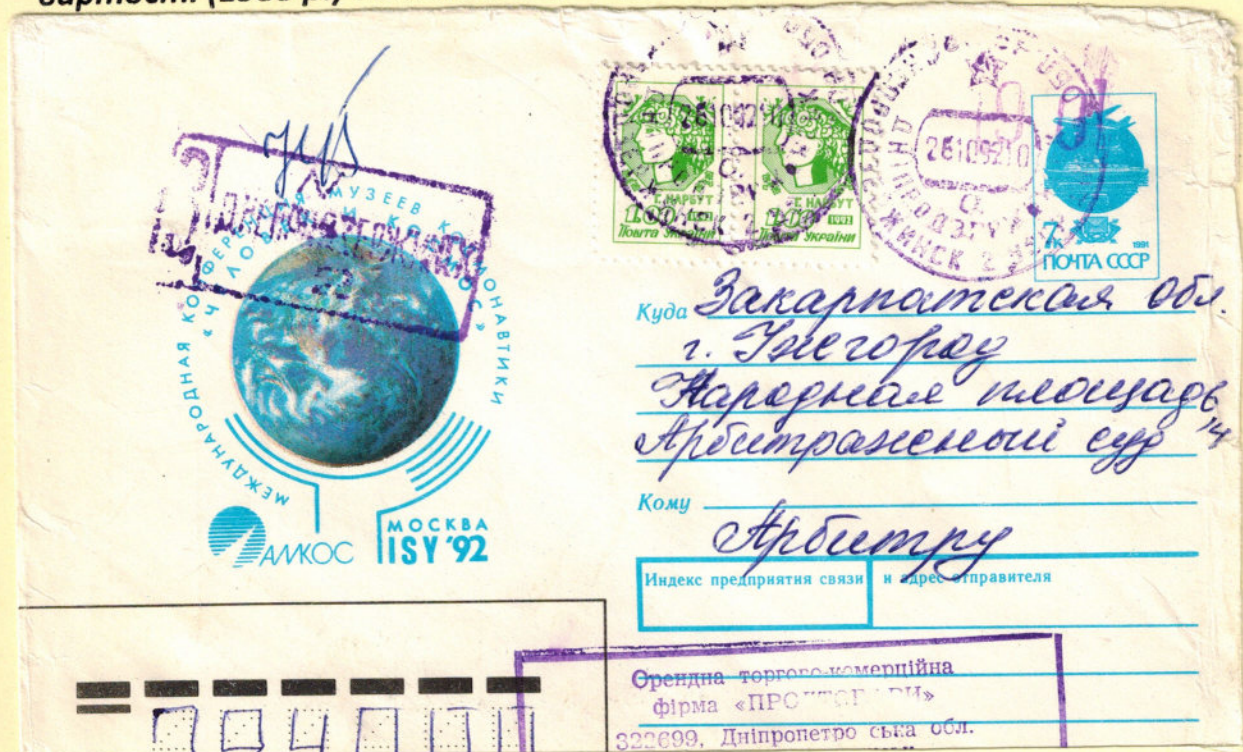 МЕЖДУНАРОДНАЯ КОНФЕРЕНЦИЯ МУЗЕЕВ КОСМОНАВТИКИ
«ЧЕЛОВЕК И КОСМОС»
АМКОС
МОСКВА
ISY '92
Г. НАРБУТ
1.00 1992
Пошта України
Г. НАРБУТ
1.00 1992
Пошта України
7к
1991
ПОЧТА СССР
Куда Закарпатская обл.
г. Ужгород
Народная площадь
Арбитражный суд
Кому
Арбитру
Индекс предприятия связи и адрес отправителя
Орендна торгово-комерційна
фірма
322699, Дніпропетро ська обл.